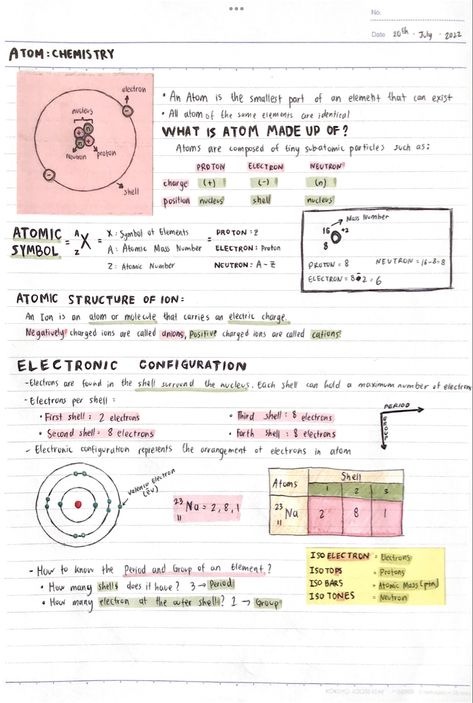 No.
Date 20th · July · 2022
ATOM: CHEMISTRY
electron
nucleus
neutron
proton
shell
• An Atom is the smallest part of an element that can exist
• All atom of the same elements are identical
WHAT IS ATOM MADE UP OF?
Atoms are composed of tiny subatomic particles such as:
PROTON ELECTRON NEUTRON
charge (+) (-) (n)
position nucleus shell nucleus
ATOMIC SYMBOL = A Z X = X: Symbol of Elements = PROTON: Z
A: Atomic Mass Number ELECTRON: Proton
Z: Atomic Number NEUTRON: A-Z
Mass Number
16 +2
8
PROTON = 8 NEUTRON = 16-8=8
ELECTRON = 8-2 = 6
ATOMIC STRUCTURE OF ION:
An Ion is an atom or molecule that carries an electric charge.
Negatively charged ions are called anions, Positive charged ions are called cations.
ELECTRONIC CONFIGURATION
- Electrons are found in the shell surround the nucleus. Each shell can hold a maximum number of electron
- Electrons per shell:
• First shell: 2 electrons • Third shell: 8 electrons
• Second shell: 8 electrons • Forth shell: 8 electrons
PERIOD
GROUP
- Electronic configuration represents the arrangement of electrons in atom
Valence Electron
(EV)
23 11 Na = 2, 8, 1
Atoms Shell
1 2 3
23 11 Na 2 8 1
- How to know the Period and Group of an Element?
• How many shells does it have? 3 → Period
• How many electron at the outer shell? 1 → Group
ISO ELECTRON = Electrons
ISO TOPS = Protons
ISO BARS = Atomic Mass (p+n)
ISO TONES = Neutron